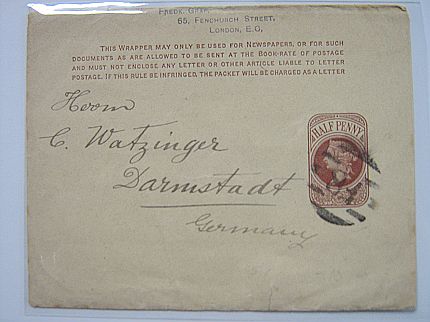 FREDK. GRAF.
65, FENCHURCH STREET,
LONDON, E.C.
THIS WRAPPER MAY ONLY BE USED FOR NEWSPAPERS, OR FOR SUCH
DOCUMENTS AS ARE ALLOWED TO BE SENT AT THE BOOK-RATE OF POSTAGE
AND MUST NOT ENCLOSE ANY LETTER OR OTHER ARTICLE LIABLE TO LETTER
POSTAGE. IF THIS RULE BE INFRINGED, THE PACKET WILL BE CHARGED AS A LETTER
Herrn
C. Watzinger
Darmstadt
Germany
HALF PENNY